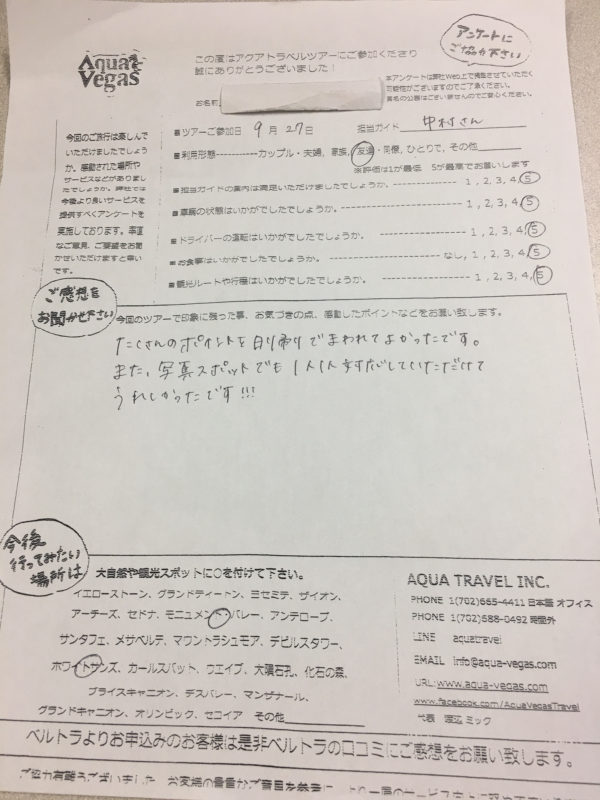 Aqua
Vegas
この度はアクアトラベルツアーにご参加くださり
誠にありがとうございました！
アンケートに
ご協力下さい
本アンケートは弊社Web上で掲載させていただく
可能性がございますのでご了承ください。
署名の公表はございませんのでご安心ください。
お名前
今回のご旅行は楽しんで
いただけましたでしょう
か。感動された場所や
サービスなどがありまし
たでしょうか。弊社では
今後より良いサービスを
提供すべくアンケートを
実施しております。率直
なご意見、ご要望をお聞
かせいただけますと幸い
です。
■ツアーご参加日 9月27日 担当ガイド 中村さん
■利用形態------------カップル・夫婦, 家族, 友達・同僚, ひとりで, その他
※評価は1が最低 5が最高でお願いします
■担当ガイドの案内は満足いただけましたでしょうか。 1, 2, 3, 4, 5
■車両の状態はいかがでしたでしょうか。 1, 2, 3, 4, 5
■ドライバーの運転はいかがでしたでしょうか。 1, 2, 3, 4, 5
■お食事はいかがでしたでしょうか。 なし, 1, 2, 3, 4, 5
■観光ルートや行程はいかがでしたでしょうか。 1, 2, 3, 4, 5
ご感想を
お聞かせ下さい
今回のツアーで印象に残った事、お気づきの点、感動したポイントなどをお願い致します。
たくさんのポイントを日帰りでまわれてよかったです。
また、写真スポットでも1人1人対応していただけて
うれしかったです!!!
今後
行ってみたい
場所は
大自然や観光スポットに○を付けて下さい。
イエローストーン、グランドティートン、ヨセミテ、ザイオン、
アーチーズ、セドナ、モニュメント・バレー、アンテロープ、
サンタフェ、メサベルテ、マウントラシュモア、デビルスタワー、
ホワイトサンズ、カールスバット、ウエイブ、大隕石孔、化石の森、
ブライスキャニオン、デスバレー、マンザナール、
グランドキャニオン、オリンピック、セコイア その他
AQUA TRAVEL INC.
PHONE 1(702)665-4411 日本語 オフィス
PHONE 1(702)588-0492 時間外
LINE aquatravel
EMAIL info@aqua-vegas.com
URL: www.aqua-vegas.com
www.facebook.com/AquaVegasTravel
代表 渡辺 ミック
ベルトラよりお申込みのお客様は是非ベルトラの口コミにご感想をお願い致します。
ご協力有難うございました